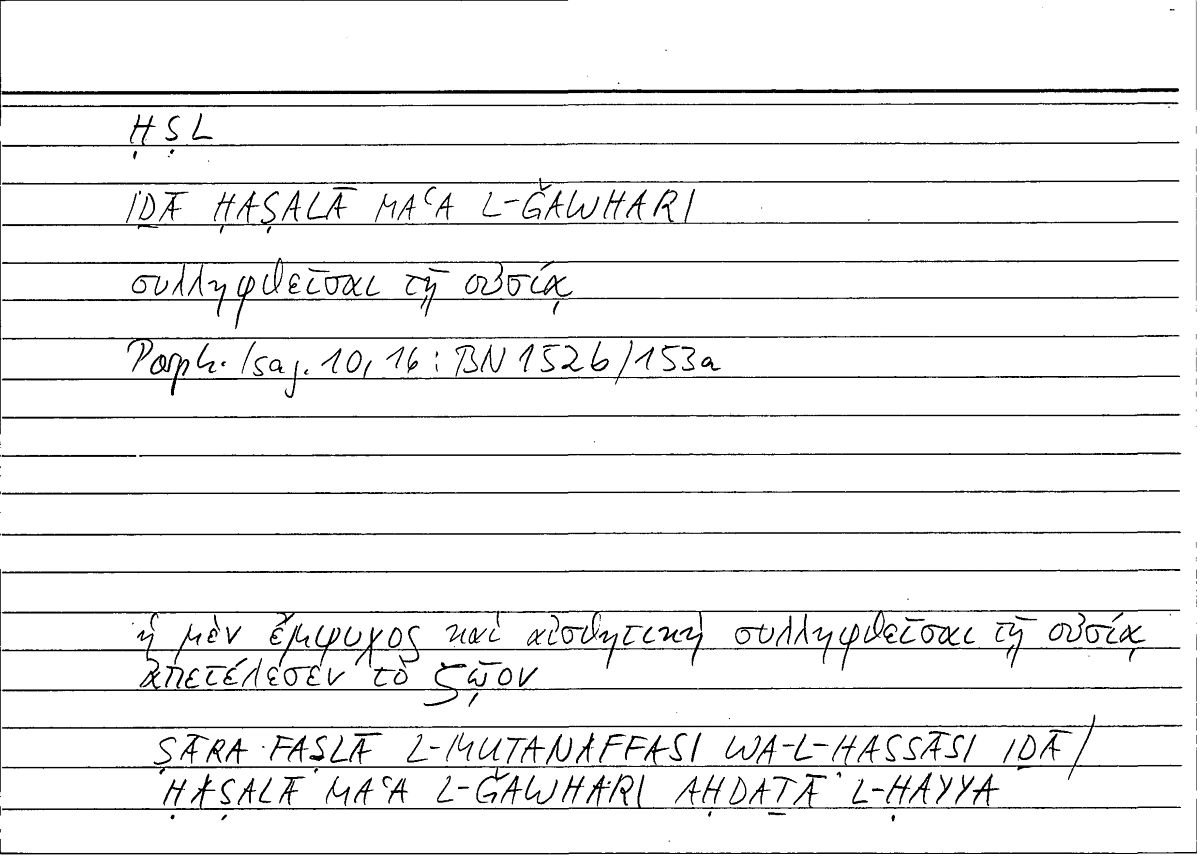 ḤṢL
IḎĀ ḤAṢALĀ MAʿA L-ǦAWHARI
συλληφθεῖσαι τῇ οὐσίᾳ
Porph. Isag. 10, 16 : BN 152b/153a
ἡ μὲν ἔμψυχος καὶ αἰσθητικὴ συλληφθεῖσαι τῇ οὐσίᾳ
ἀπετέλεσεν τὸ ζῷον
ṢĀRA FAṢLĀ L-MUTANAFFASI WA-L-HASSĀSI IḎĀ/
ḤAṢALĀ MAʿA L-ǦAWHARI AḤDAṮĀ L-ḤAYYA